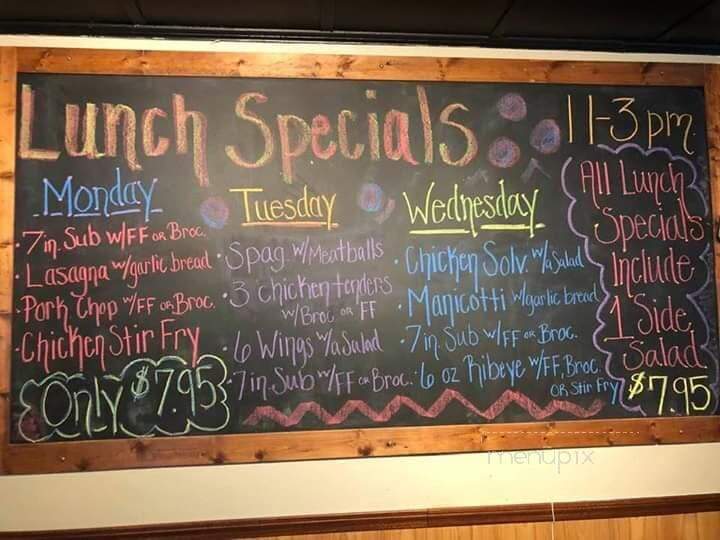 Lunch Specials
11-3 pm
Monday
• 7 in. Sub w/FF OR Broc.
• Lasagna w/garlic bread
• Pork Chop w/FF OR Broc.
• Chicken Stir Fry
Only $7.95
Tuesday
• Spag w/Meatballs
• 3 chicken tenders
w/Broc OR FF
• 6 Wings w/a Salad
• 7 in. Sub w/FF OR Broc.
Wednesday
• Chicken Solv. w/a Salad
• Manicotti w/garlic bread
• 7 in. Sub w/FF OR Broc.
• 6 oz Ribeye w/FF, Broc.
OR Stir Fry
All Lunch
Specials
Include
1 Side
Salad
$7.95
menupix